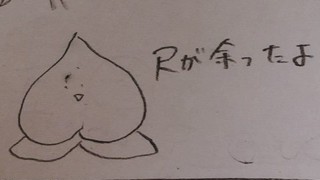 Rが余ったよ